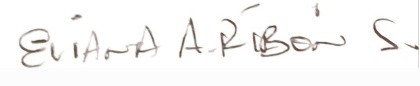 ELIANA A. RIBÓN S.